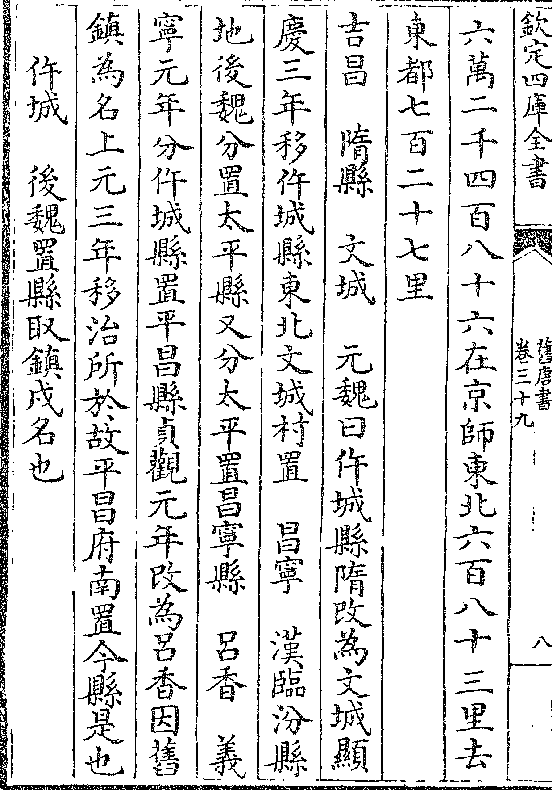 欽定四庫全書
舊唐書
卷三十九
八
六萬二千四百八十六在京師東北六百八十三里去
東都七百二十七里
吉昌　隋縣　文城　元魏曰仵城縣隋改為文城顯
慶三年移仵城縣東北文城村置　昌寧　漢臨汾縣
地後魏分置太平縣又分太平置昌寧縣　呂香　義
寧元年分仵城縣置平昌縣貞觀元年改為呂香因舊
鎮為名上元三年移治所於故平昌府南置今縣是也
仵城　後魏置縣取鎮戍名也